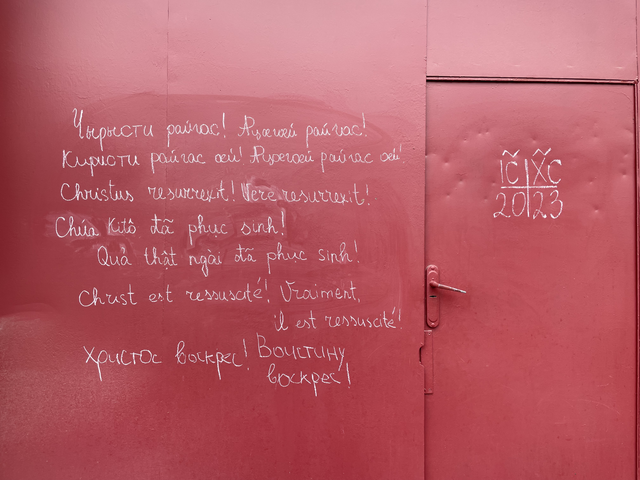 Чырысти райгас! Æцæгæй райгас!
Киристи райгас æй! Æцæгæй райгас æй!
Christus resurrexit! Vere resurrexit!
Chúa Kitô đã phục sinh!
Quả thật ngài đã phục sinh!
Christ est ressuscité! Vraiment,
il est ressuscité!
Христос воскрес! Воистину
воскрес!
IC XC
2023